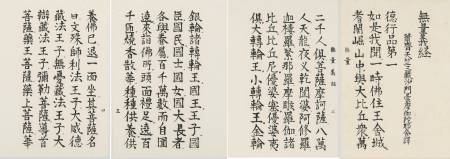 無量義經
蕭齊天竺三藏曇摩伽陀耶舍譯
德行品第一
如是我聞一時佛住王舍城
耆闍崛山中與大比丘衆萬
無量義經
二千人俱菩薩摩訶薩八萬
人天龍夜叉乾闥婆阿修羅
迦樓羅緊那羅摩睺羅伽諸
比丘比丘尼優婆塞優婆夷
俱大轉輪王小轉輪王金輪
銀輪諸轉輪王國王王子國
臣國民國士國女國大長者
各與眷屬百千萬數而自圍
遶來詣佛所頭面禮足遶百
千匝燒香散華種種供養供
養佛已退一面坐其菩薩名
曰文殊師利法王子大威德
藏法王子無憂藏法王子大
辯藏法王子彌勒菩薩導首
菩薩藥王菩薩藥上菩薩華